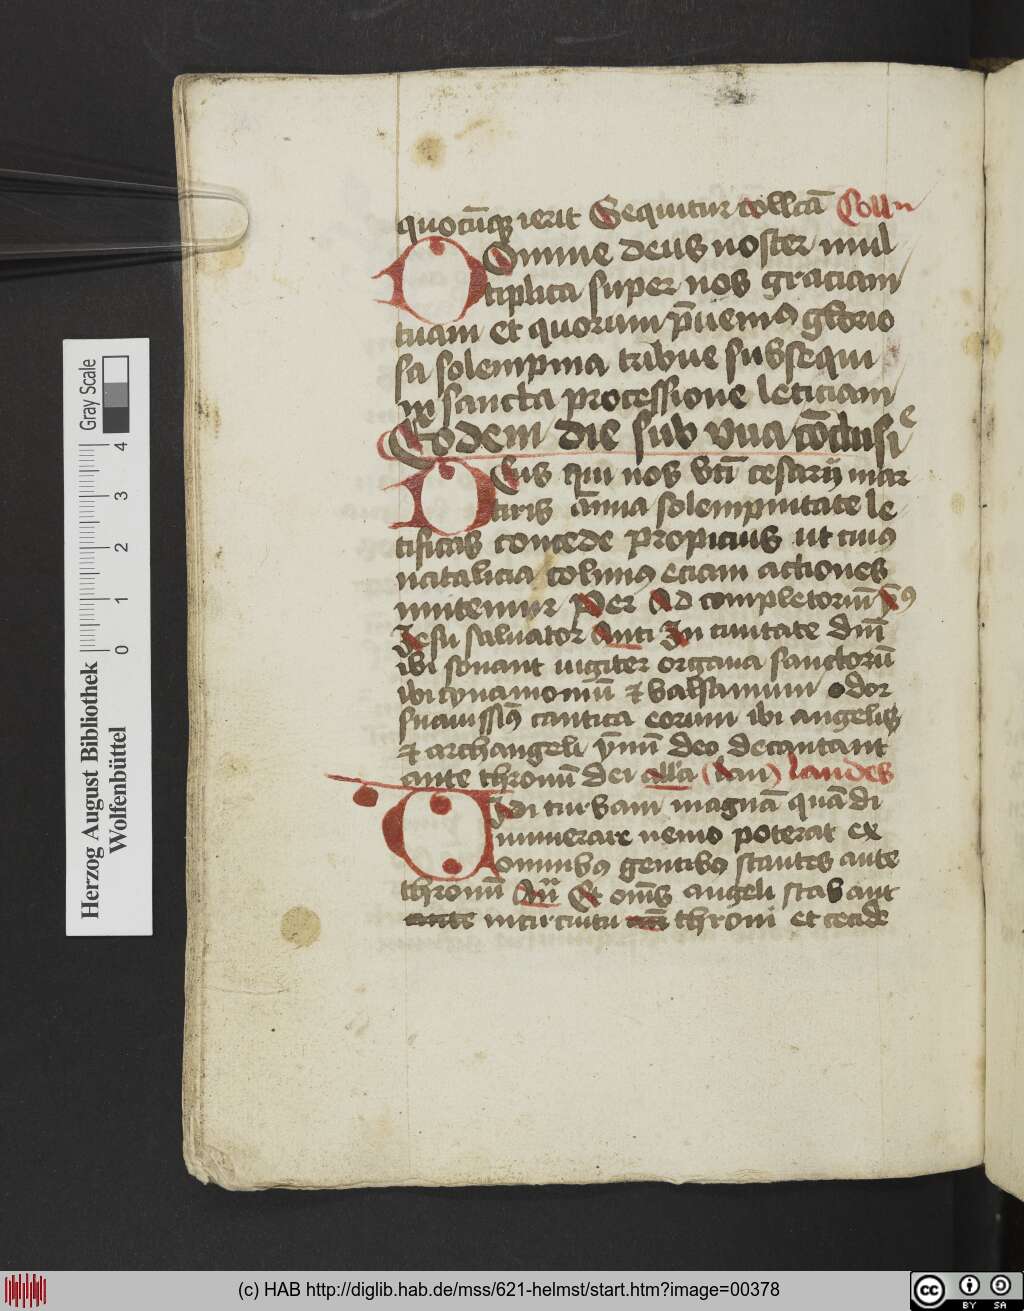 quocūq ierit Sequitur collcā Colln
Domine deus noster mul
tiplica super nos graciam
tuam et quorum p̄uenimꝰ glorio
sa solempnia tribue subsequi
in sancta processione leticiam
Eodem die sub vna cōclusiᵉ
Deus qui nos bt̄i cesarij mar
tiris ānua solempnitate le
tificas concede propicius ut cuiꝰ
natalicia colimꝰ eciam actiones
imitemur Per Ad completoriū
Jesu saluator Anti In ciuitate dn̄i
ibi sonant iugiter organa sanctorū
ibi cynamomū ⁊ balsamum odor
suauissimꝰ cantica eorum ibi angeli
⁊ archangeli ymnū deo decantant
ante thronū dei all'a laudes
Uidi turbam magnā quā di
numerare nemo poterat ex
omnibꝰ gentibꝰ stantes ante
thronū An̄ Et om̄s angeli stabant
ante in circuitu throni et cecider
Herzog August Bibliothek
Wolfenbüttel
0 1 2 3 4
Gray Scale
(c) HAB http://diglib.hab.de/mss/621-helmst/start.htm?image=00378
cc BY SA